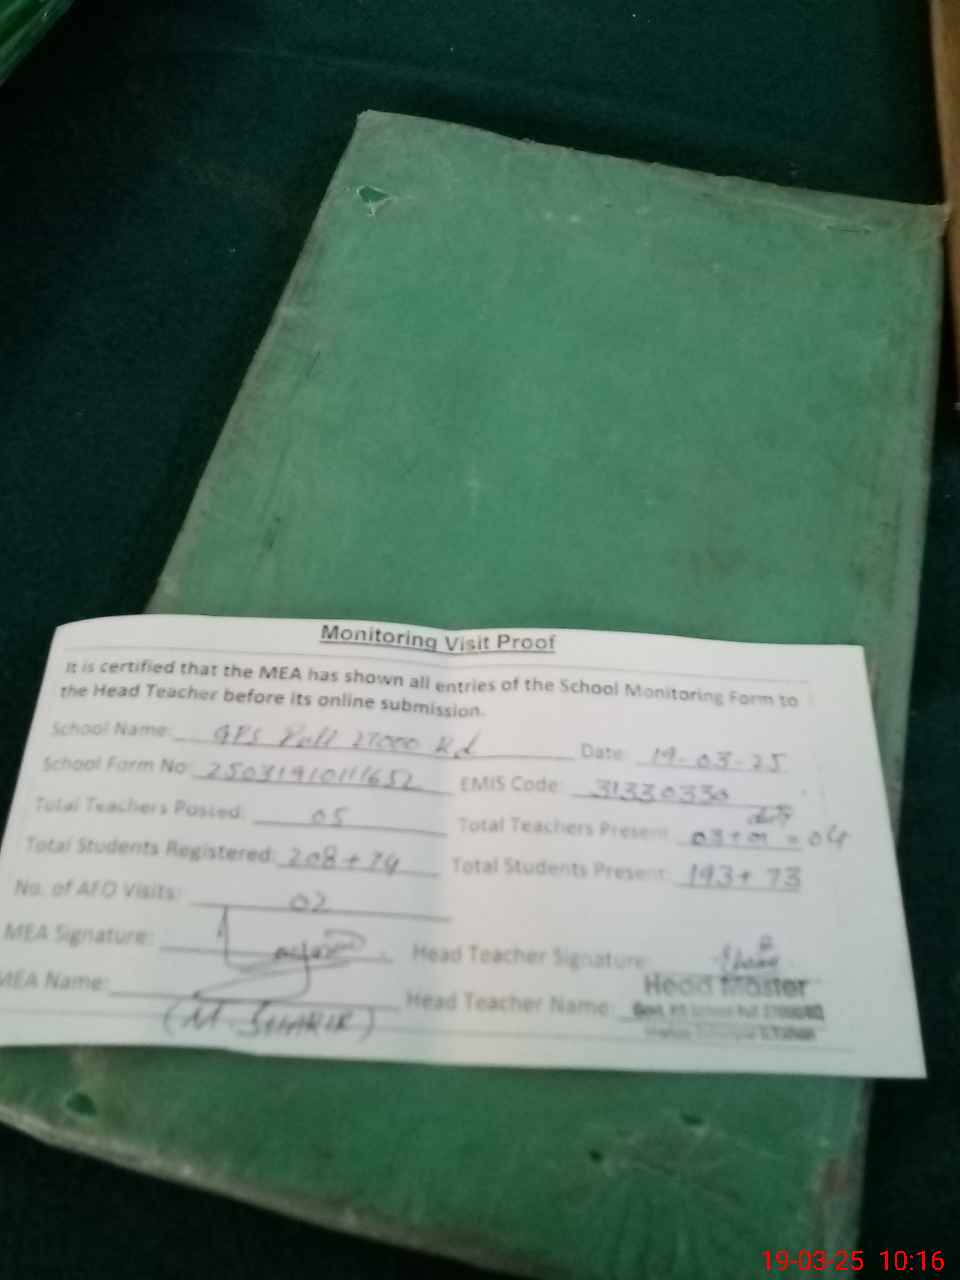 Monitoring Visit Proof
It is certified that the MEA has shown all entries of the School Monitoring Form to
the Head Teacher before its online submission.
School Name: GPS Pull 27000 Rd Date: 19-03-25
School Form No: 25031910111652 EMIS Code: 31330330
Total Teachers Posted: 05 Total Teachers Present: 03+01 = 04
Total Students Registered: 208+74 Total Students Present: 193+73
No. of AEO Visits: 02
MEA Signature: Head Teacher Signature:
Head Master
MEA Name: Head Teacher Name:
(M. SHAKIR)
19-03-25 10:16